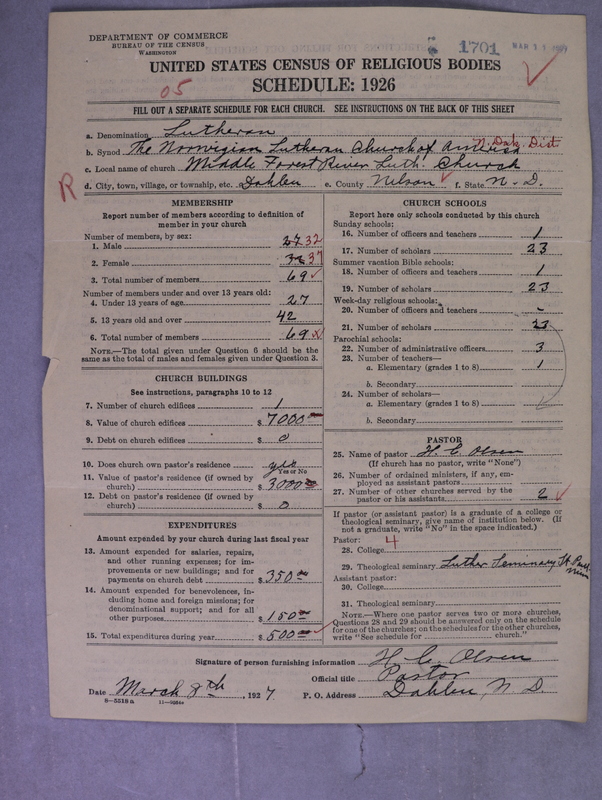 DEPARTMENT OF COMMERCE
BUREAU OF THE CENSUS
WASHINGTON
1701
UNITED STATES CENSUS OF RELIGIOUS BODIES
SCHEDULE: 1926
05
FILL OUT A SEPARATE SCHEDULE FOR EACH CHURCH. SEE INSTRUCTIONS ON THE BACK OF THIS SHEET
a. Denomination Lutheran
b. Synod The Norwegian Lutheran Church of America N. Dak. Dist
c. Local name of church Middle Forest River Luth. Church
R d. City, town, village, or township, etc. Dahlen e. County Nelson f. State N. D.
MEMBERSHIP
Report number of members according to definition of member in your church
Number of members, by sex:
1. Male 32
2. Female 37
3. Total number of members 69
Number of members under and over 13 years old:
4. Under 13 years of age 27
5. 13 years old and over 42
6. Total number of members 69
NOTE.—The total given under Question 6 should be the same as the total of males and females given under Question 3.
CHURCH BUILDINGS
See instructions, paragraphs 10 to 12
7. Number of church edifices 1
8. Value of church edifices $ 7000
9. Debt on church edifices $ 0
10. Does church own pastor's residence yes
Yes or No
11. Value of pastor's residence (if owned by church) $ 3000
12. Debt on pastor's residence (if owned by church) $ 0
EXPENDITURES
Amount expended by your church during last fiscal year
13. Amount expended for salaries, repairs, and other running expenses; for improvements or new buildings; and for payments on church debt $ 350
14. Amount expended for benevolences, including home and foreign missions; for denominational support; and for all other purposes $ 150
15. Total expenditures during year $ 500
CHURCH SCHOOLS
Report here only schools conducted by this church
Sunday schools:
16. Number of officers and teachers 1
17. Number of scholars 23
Summer vacation Bible schools:
18. Number of officers and teachers 1
19. Number of scholars 23
Week-day religious schools:
20. Number of officers and teachers -
21. Number of scholars 23
Parochial schools:
22. Number of administrative officers 3
23. Number of teachers—
a. Elementary (grades 1 to 8) 1
b. Secondary
24. Number of scholars—
a. Elementary (grades 1 to 8)
b. Secondary
PASTOR
25. Name of pastor H. C. Olsen
(If church has no pastor, write "None")
26. Number of ordained ministers, if any, employed as assistant pastors
27. Number of other churches served by the pastor or his assistants 2
If pastor (or assistant pastor) is a graduate of a college or theological seminary, give name of institution below. (If not a graduate, write "No" in the space indicated.)
Pastor: 4
28. College
29. Theological seminary Luther Seminary St. Paul Minn
Assistant pastor:
30. College
31. Theological seminary
NOTE.—Where one pastor serves two or more churches, Questions 28 and 29 should be answered only on the schedule for one of the churches; on the schedules for the other churches, write "See schedule for church."
Signature of person furnishing information H. C. Olsen
Official title Pastor
Date March 8th, 1927 P. O. Address Dahlen, N. D
8—5518a 11—9264a